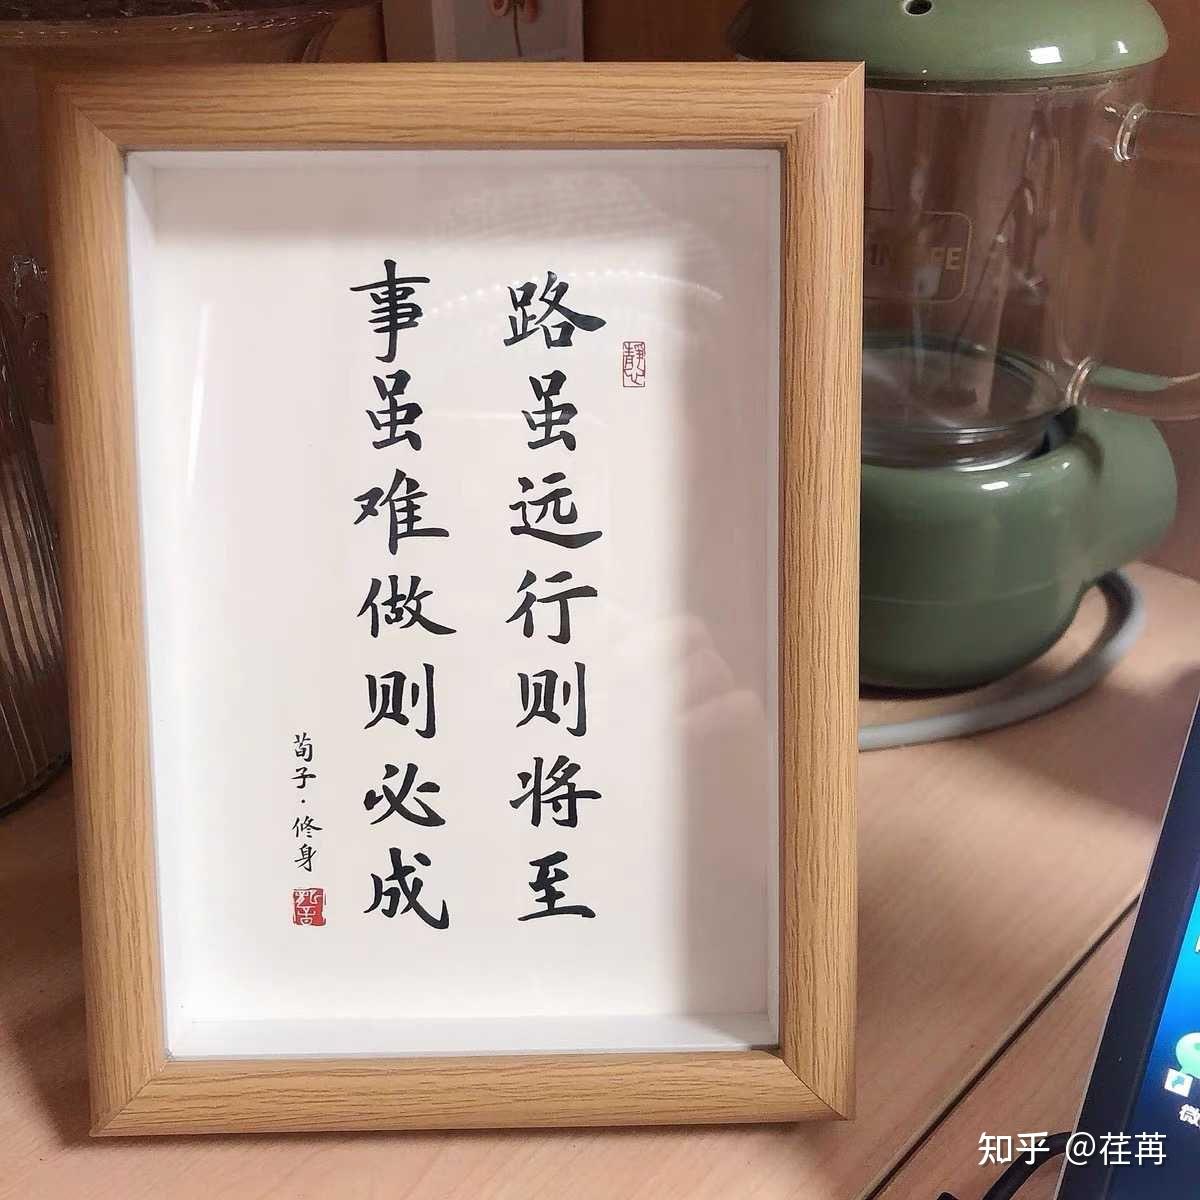 路虽远行则将至
事虽难做则必成
荀子·修身
静心
知乎 @荏苒